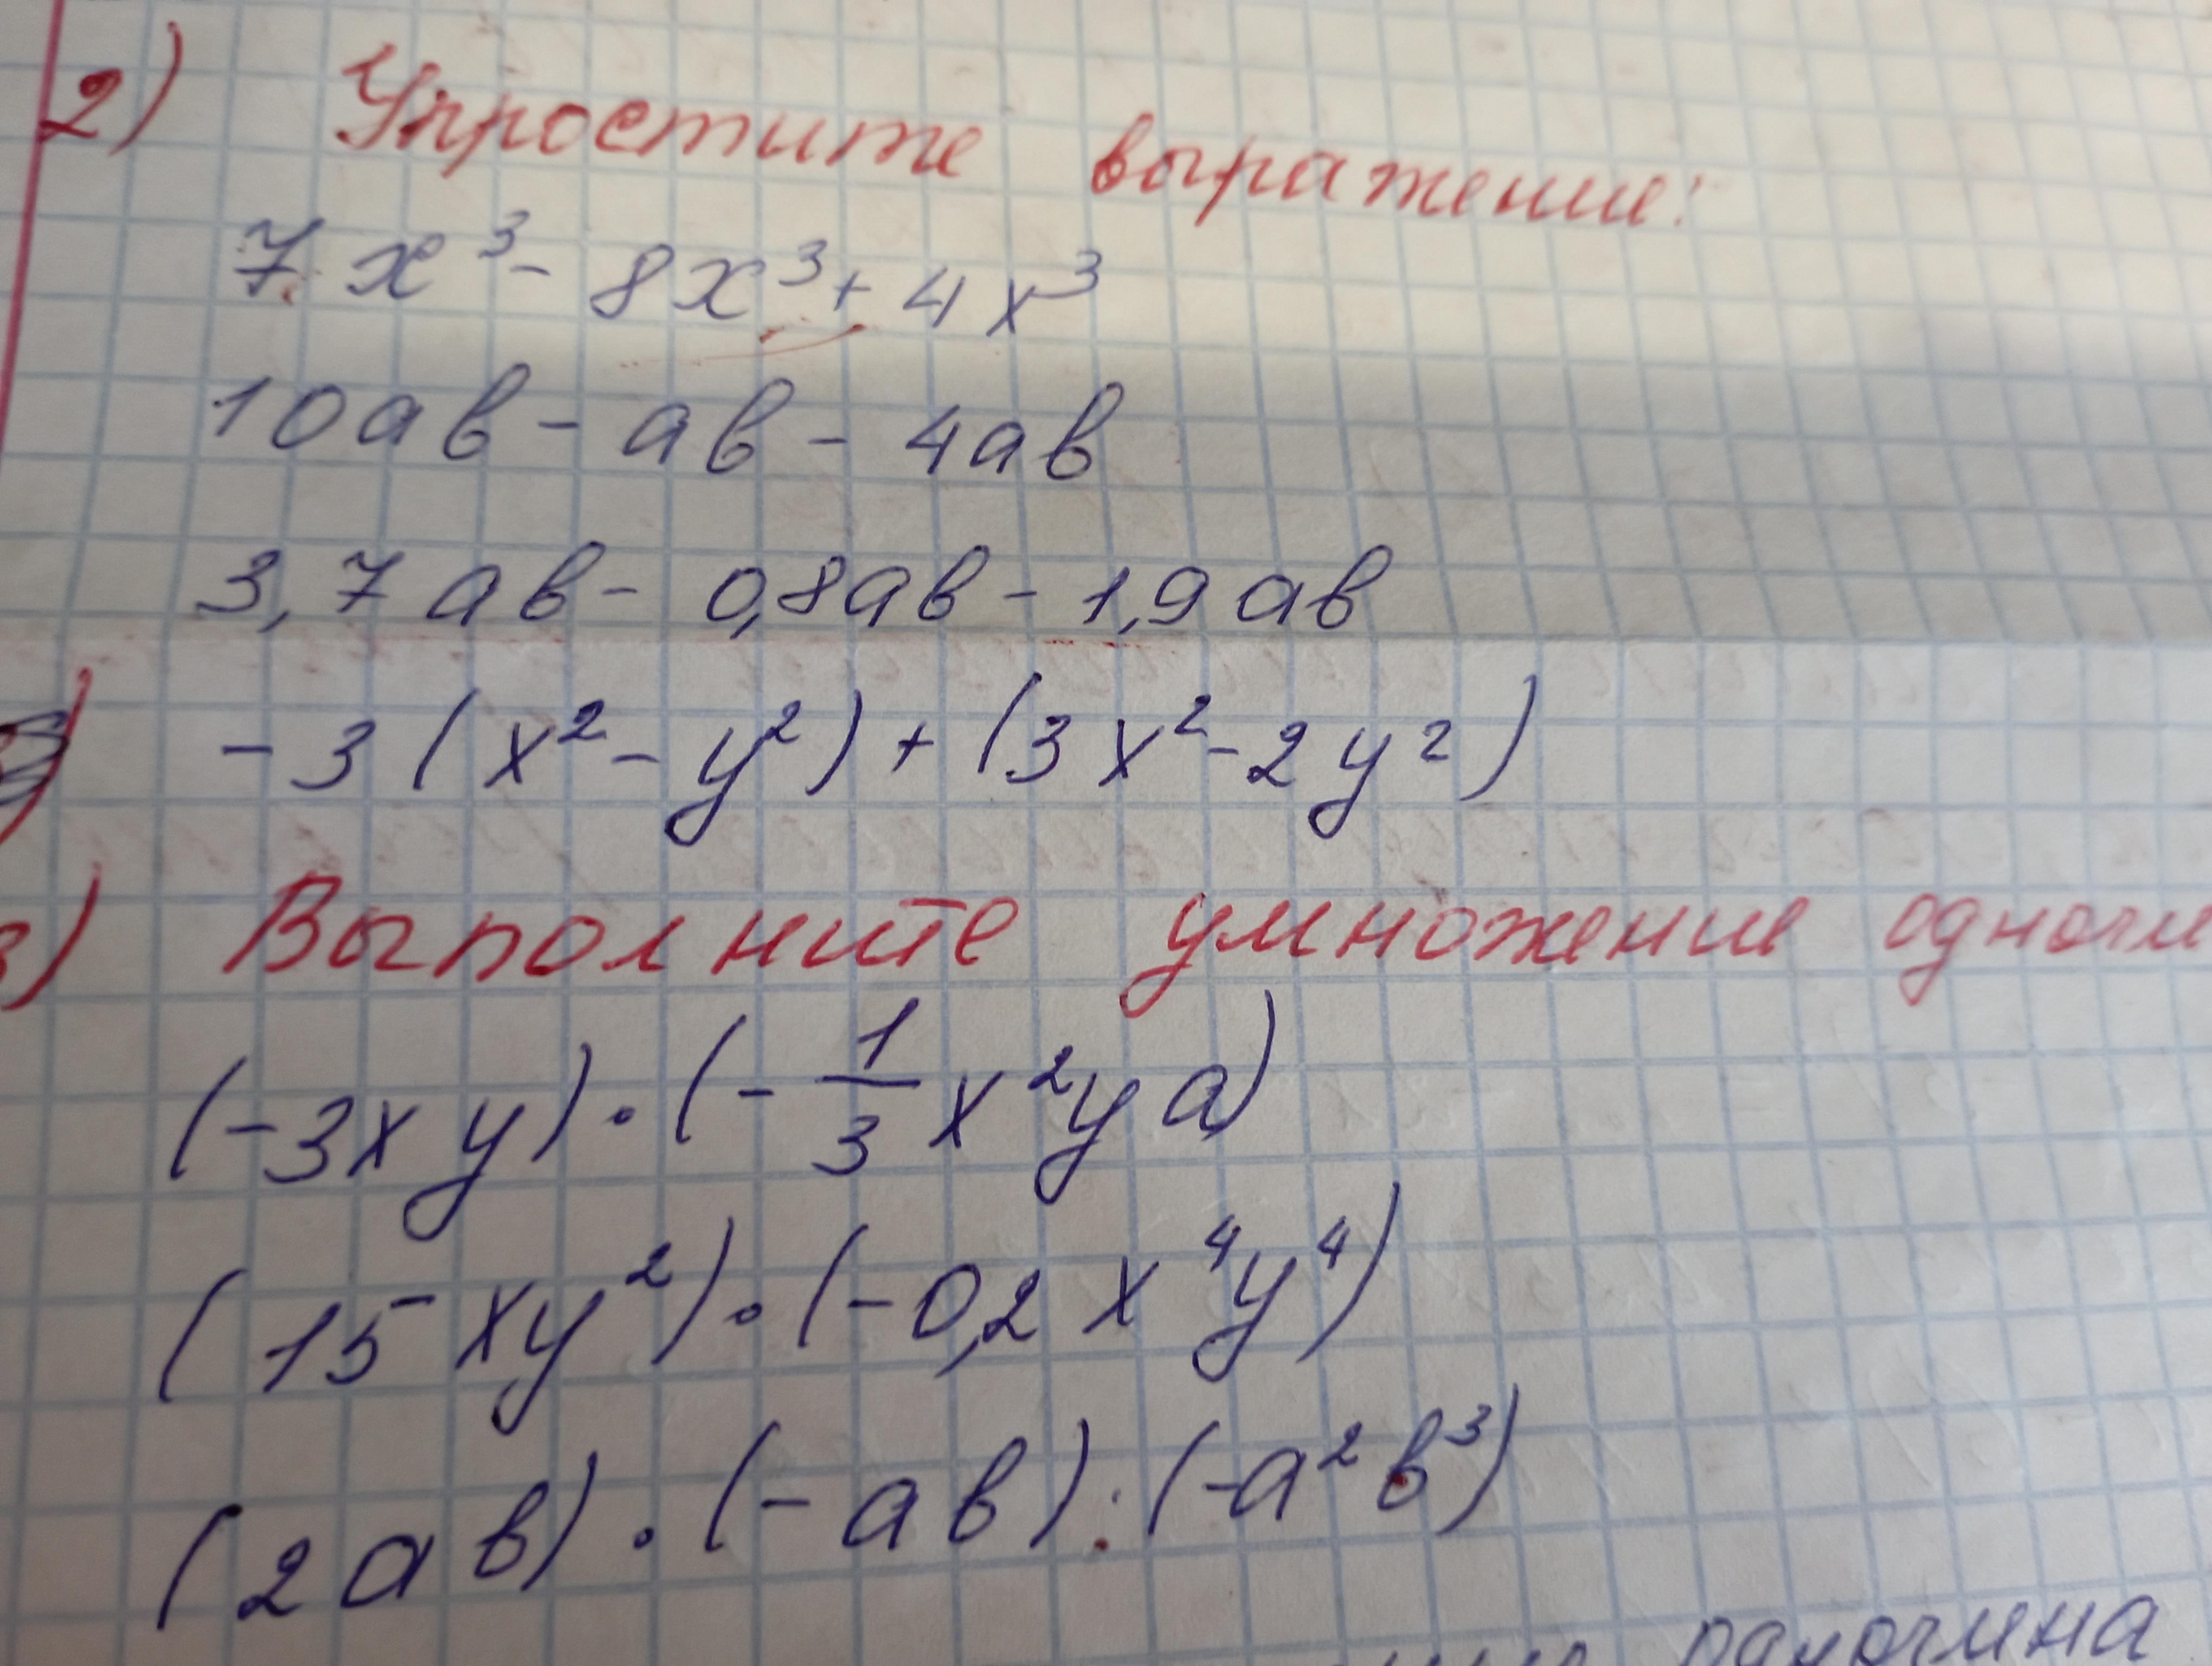 2) Упростите выражение:
7x³ - 8x³ + 4x³
10ab - ab - 4ab
3,7ab - 0,8ab - 1,9ab
-3(x² - y²) + (3x² - 2y²)
3) Выполните умножение одночл
(-3xy)·(-1/3x²ya)
(15xy²)·(-0,2x⁴y⁴)
(2ab)·(-ab):(-a²b³)
одночлена